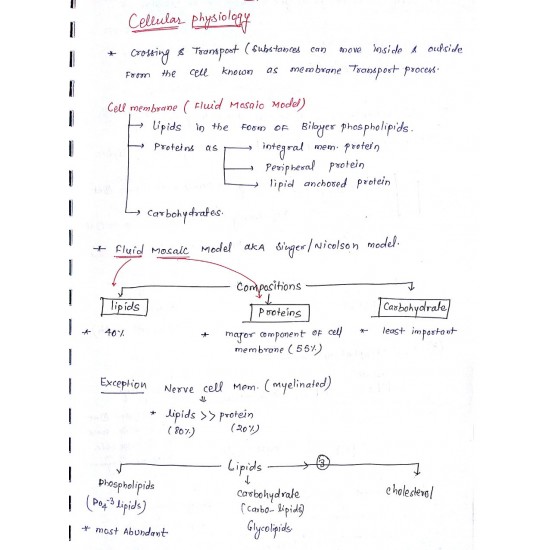 Cellular physiology
* Crossing & Transport (Substances can move inside & outside
From the cell known as membrane Transport process.
Cell membrane ( Fluid Mosaic Model)
→ Lipids in the Form OF Bilayer phospholipids.
→ Proteins as → integral mem. protein
→ Peripheral protein
→ lipid anchored protein
→ Carbohydrates.
* Fluid Mosaic Model aka Singer/Nicolson model.
Compositions
lipids Proteins Carbohydrate
* 40% * major component of cell * least important
membrane (55%)
Exception Nerve cell Mem. (myelinated)
* lipids >> protein
(80%) (20%)
Lipids → ③
Phospholipids Carbohydrate cholesterol
(Po4-3 lipids) (carbo-lipids)
* most Abundant Glycolipids